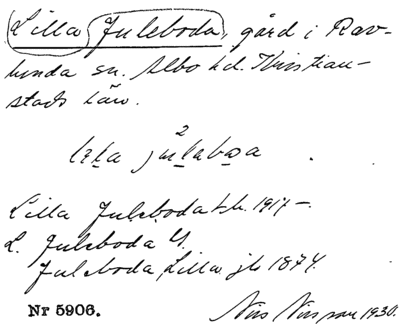 Lilla Juleboda, gård i Rav-
lunda sn. Albo hd. Kristian-
stads län.
2
Lilla Juleboda t.k. 1917 –.
L. Juleboda
Juleboda, Lilla jb 1874.
Nr 5906.
Nils Nilsson 1930.